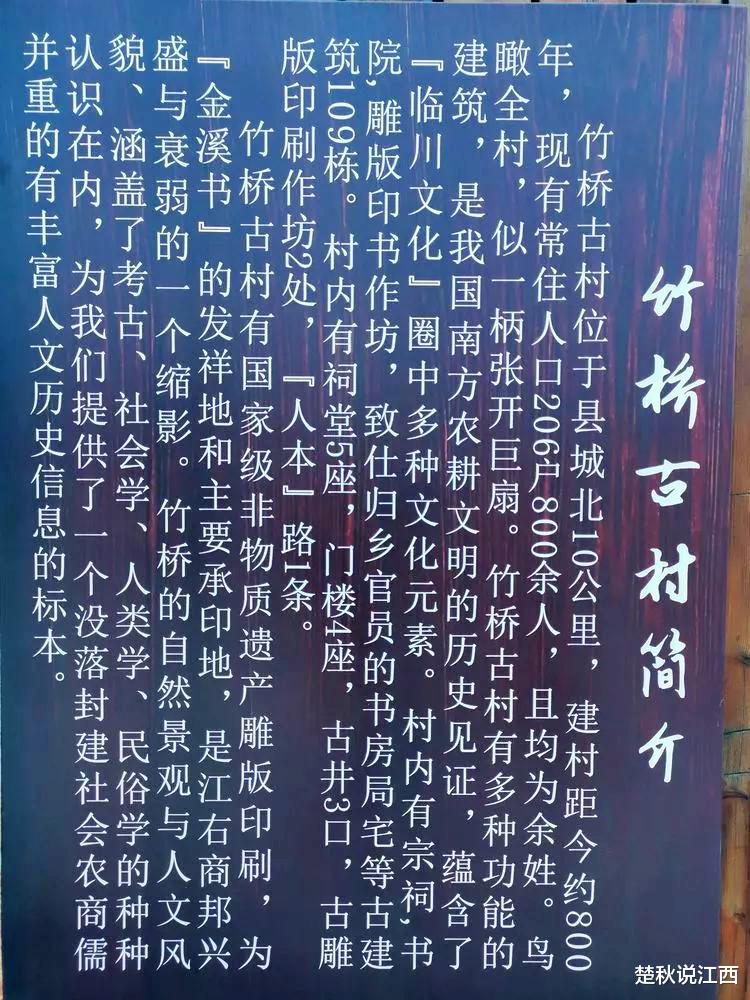 竹桥古村简介
竹桥古村位于县城北10公里，建村距今约800
年，现有常住人口206户800余人，且均为余姓。鸟
瞰全村，似一柄张开巨扇。竹桥古村有多种功能的
建筑，是我国南方农耕文明的历史见证，蕴含了
『临川文化』圈中多种文化元素。村内有宗祠,书
院,雕版印书作坊，致仕归乡官员的书房局宅等古建
筑109栋。村内有祠堂5座，门楼4座，古井3口，古雕
版印刷作坊2处，『人本』路1条。
竹桥古村有国家级非物质遗产雕版印刷，为
『金溪书』的发祥地和主要承印地，是江右商邦兴
盛与衰弱的一个缩影。竹桥的自然景观与人文风
貌、涵盖了考古、社会学、人类学、民俗学的种种
认识在内，为我们提供了一个没落封建社会农商儒
并重的有丰富人文历史信息的标本。
楚秋说江西